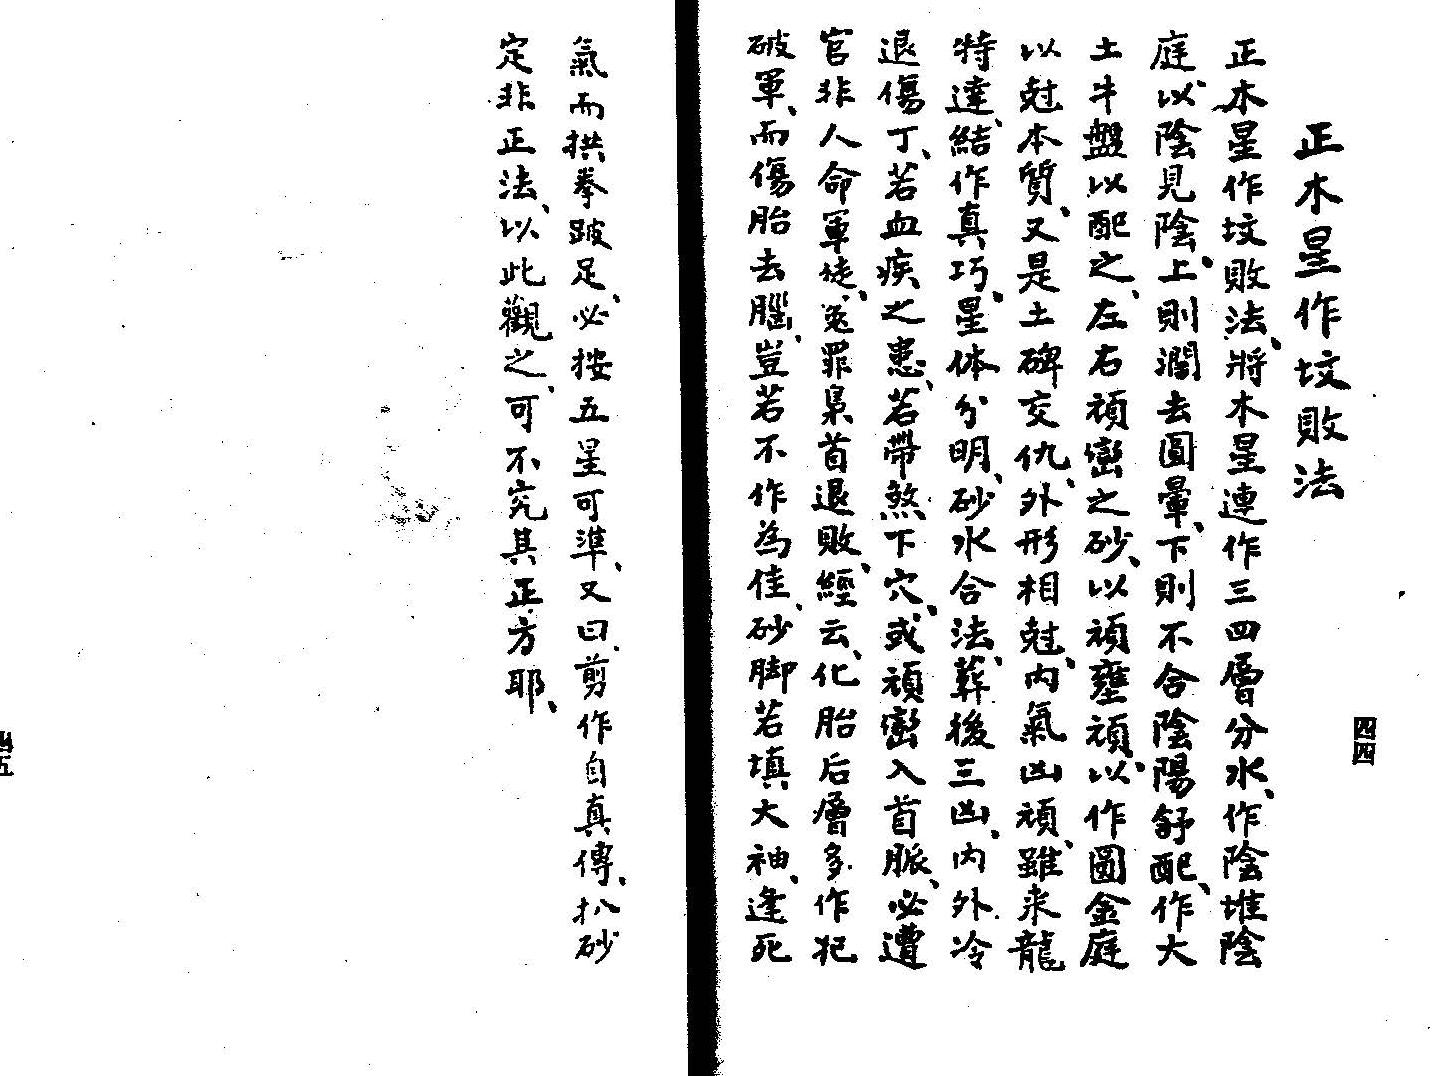 正木星作坟敗法
正木星作坟敗法、將木星連作三四層分水、作陰堆陰
庭、以陰見陰、上則濶去圓暈、下則不合陰陽舒配、作大
土牛盤以配之、左右頑巒之砂、以頑壅頑、以作圓金庭
以尅本質、又是土碑交仇、外形相尅、內氣凶頑、雖来龍
特達、結作真巧、星体分明、砂水合法、葬後三凶、内外冷
退傷丁、若血疾之患、若帶煞下穴、或頑巒入首脈、必遭
官非人命軍徒、冤罪梟首退敗、經云、化胎后層多作犯
破軍、而傷胎去腦、豈若不作為佳、砂脚若填大袖、逢死
四四
氣而拱拳跛足、必按五星可準、又曰、剪作自真傳、扒砂
定非正法、以此觀之、可不究其正方耶、
四五